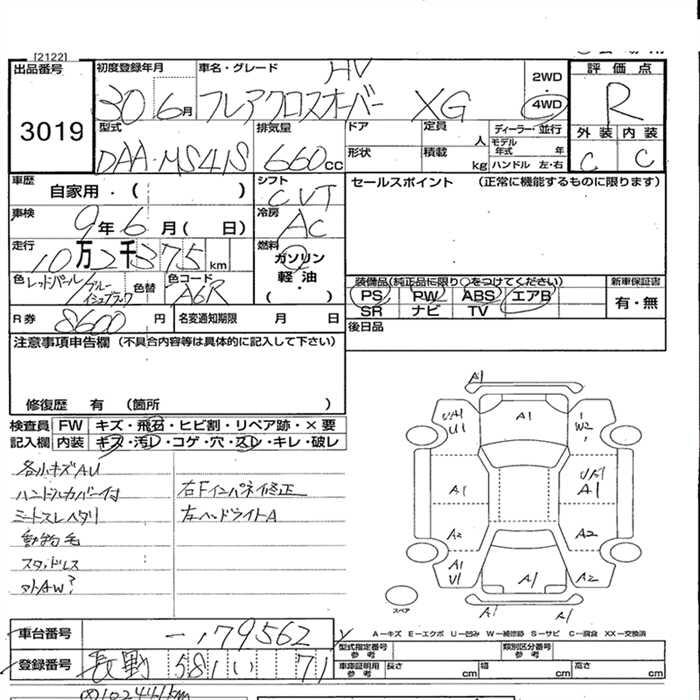 [2122]
出品番号
3019
初度登録年月
30 6月
車名・グレード
HV
フレアクロスオーバー XG
2WD
4WD
評価点
R
外装 内装
C C
型式
DAA-MS41S
排気量
660cc
ドア
形状
定員 人
積載 kg
ディーラー・並行
モデル年式 年
ハンドル 左・右
車歴
自家用・( )
シフト
CVT
セールスポイント (正常に機能するものに限ります)
車検
9年6月( 日)
冷房
AC
走行
10万2千375km
燃料
ガソリン
軽・油
( ・ )
色
レッドパール/ブルーイシュブラック
色替
色コード
A6R
装備品(純正品に限り○をつけてください)
PS PW ABS エアB
SR ナビ TV
新車保証書
有・無
R券 8600円
名変通知期限 月 日
後日品
注意事項申告欄 (不具合内容等は具体的に記入して下さい)
修復歴 有 (箇所 )
検査員記入欄
FW キズ・飛石・ヒビ割・リペア跡・×要
内装 キズ・汚レ・コゲ・穴・スレ・キレ・破レ
各小キズAU
ハンドルカバー付
シートスレヘタリ
動物毛
スタッドレス
外AW?
右Fインパネ修正
左ヘッドライトA
A1
A1
U1
A1
W2
A1
A1
A2
A2
A1
U1
A1
A2
A1
A1
スペア
A-キズ E-エクボ U-凹み W-補修跡 S-サビ C-腐食 XX-交換済
車台番号
-179562
型式指定番号
参考
類別区分番号
参考
登録番号
長野 581 い 71
車庫証明用
参考
長さ cm 幅 cm 高さ cm